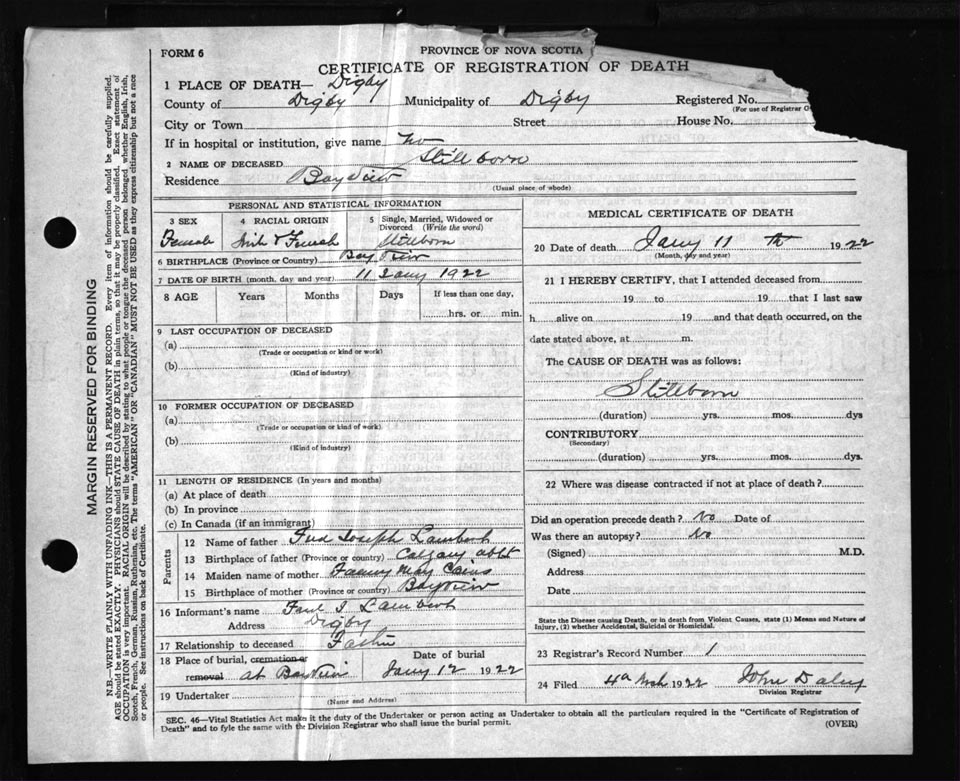 FORM 6
PROVINCE OF NOVA SCOTIA
CERTIFICATE OF REGISTRATION OF DEATH
1 PLACE OF DEATH— Digby
County of Digby Municipality of Digby Registered No.
(For use of Registrar O
City or Town Street House No.
If in hospital or institution, give name No
2 NAME OF DECEASED Stillborn
Residence Bay View
(Usual place of abode)
PERSONAL AND STATISTICAL INFORMATION
3 SEX Female
4 RACIAL ORIGIN Irish & French
5 Single, Married, Widowed or Divorced (Write the word) Stillborn
6 BIRTHPLACE (Province or Country) Bay View
7 DATE OF BIRTH (month, day and year) 11 Jany 1922
8 AGE Years Months Days If less than one day,
hrs. or min.
9 LAST OCCUPATION OF DECEASED
(a)
(Trade or occupation or kind or work)
(b)
(Kind of industry)
10 FORMER OCCUPATION OF DECEASED
(a)
(Trade or occupation or kind or work)
(b)
(Kind of industry)
11 LENGTH OF RESIDENCE (In years and months)
(a) At place of death
(b) In province
(c) In Canada (if an immigrant)
Parents
12 Name of father Fred Joseph Lambert
13 Birthplace of father (Province or country) Calgary
14 Maiden name of mother May
15 Birthplace of mother (Province or country) Bayview
16 Informant's name Lambert
Address Digby
17 Relationship to deceased Father
18 Place of burial, cremation or removal at Bayview
Date of burial Jany 12 1922
19 Undertaker
(Name and Address)
MEDICAL CERTIFICATE OF DEATH
20 Date of death Jany 11 th 1922
(Month, day and year)
21 I HEREBY CERTIFY, that I attended deceased from
19 to 19 that I last saw
h alive on 19 and that death occurred, on the
date stated above, at m.
The CAUSE OF DEATH was as follows:
Stillborn
(duration) yrs. mos. dys
CONTRIBUTORY
(Secondary)
(duration) yrs. mos. dys.
22 Where was disease contracted if not at place of death?
Did an operation precede death? No Date of
Was there an autopsy? No
(Signed) M.D.
Address
Date
State the Disease causing Death, or in death from Violent Causes, state (1) Means and Nature of
Injury, (2) whether Accidental, Suicidal or Homicidal.
23 Registrar's Record Number 1
24 Filed 4th Mch 1922 John Daley
Division Registrar
SEC. 46—Vital Statistics Act make it the duty of the Undertaker or person acting as Undertaker to obtain all the particulars required in the "Certificate of Registration of
Death" and to fyle the same with the Division Registrar who shall issue the burial permit.
(OVER)
MARGIN RESERVED FOR BINDING
N.B.—WRITE PLAINLY WITH UNFADING INK—THIS IS A PERMANENT RECORD. Every item of information should be carefully supplied.
AGE should be stated EXACTLY. PHYSICIANS should STATE CAUSE OF DEATH in plain terms, so that it may be properly classified. Exact statement of
OCCUPATION is very important. RACIAL ORIGIN will be described by stating to what people or tongue the deceased person belonged, whether English, Irish,
Scotch, French, German, Russian, Ruthenian, etc. The terms "AMERICAN" OR "CANADIAN" MUST NOT BE USED as they express citizenship but not a race
or people. See instructions on back of Certificate.